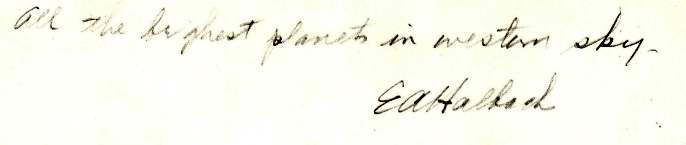 All the brighest planets in western sky-
EAHalbach